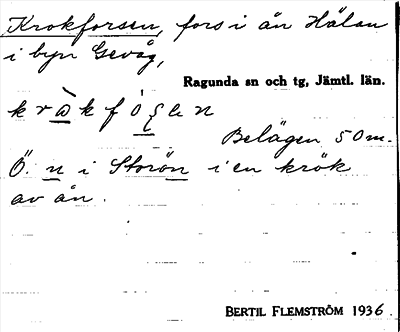 Krokforsen, fors i ån Hälan
i byn Gevåg,
Ragunda sn och tg, Jämtl. län.
Belägen 50 m.
Ö. n i Storön i en krök
av ån.
BERTIL FLEMSTRÖM 1936.